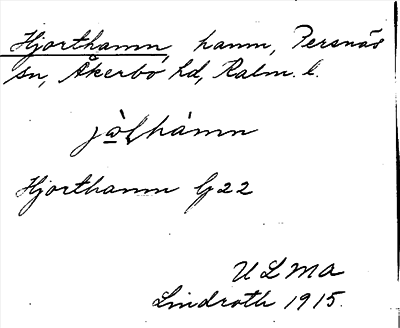 Hjorthamn, hamn, Persnäs
sn, Åkerbo hd, Kalm. l.
Hjorthamn G22
ULMA
Lindroth 1915.